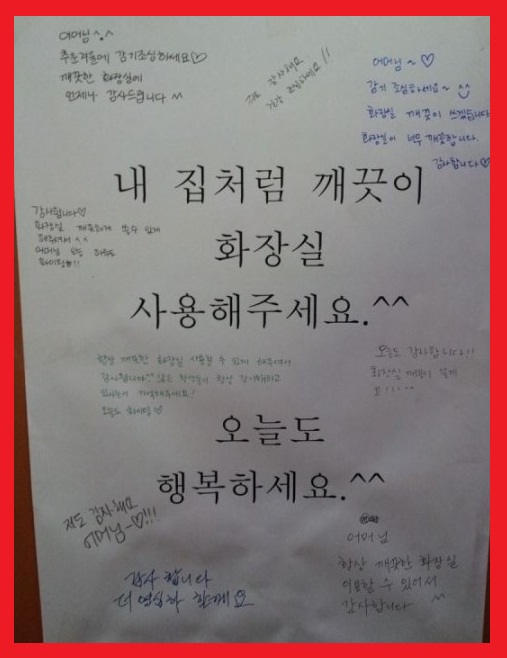 어머님 ^.^
추운겨울에 감기조심하세요♡
깨끗한 화장실에
언제나 감사드립니다 ^^
저도 감사해요
어머님~♡
감기 조심하세요~
화장실 깨끗이 쓰겠습니다
화장실이 너무 깨끗합니다.
감사합니다♡
내 집처럼 깨끗이
화장실
사용해주세요.^^
감사합니다♡
화장실 깨끗하게 쓸수 있게
해주셔서 ^^
어머님 오늘 하루도
화이팅!!
항상 깨끗한 화장실 사용할 수 있게 해주셔서
감사합니다
오늘도 화이팅♡
오늘도 감사합니다!!
화장실 깨끗이 쓸게
요!!!
오늘도
행복하세요.^^
저도 감사해요
어머님~♡!!!
감사합니다
더 열심히 할게요
어머님
항상 깨끗한 화장실
이용할 수 있어서
감사합니다 ^^